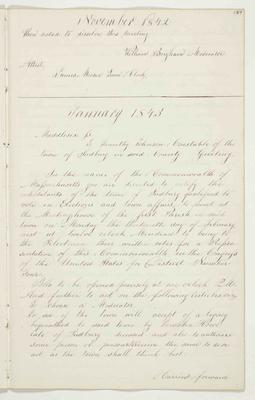 November 1842
Then voted to dissolve this meeting
William Brigham Moderator
Attest
James Moore Town Clerk
January 1843
Middlesex ss
To Constable of the
town of Sudbury in said County Greeting
In the name of the Commonwealth of
Massachusetts you are directed to notify the
inhabitants of the town of Sudbury qualified to
vote in Elections and town affairs, to meet at
the Meetinghouse of the first Parish in said
town on Monday the thirteenth day of February
next at twelve o'clock Meridian to bring to
the Selectmen their written votes for a Repre-
sentative of this Commonwealth in the Congress
of the United States for District Number
four.
Polls to be opened precisely at one o'clock P.M.
And further to act on the following Articles viz
To choose a Moderator
To see if the town will accept of a legacy
bequeathed to said town by Howe
late of Sudbury deceased and also to authorise
some person or persons to receive the same to or
act as the town shall think best.
Carried forward